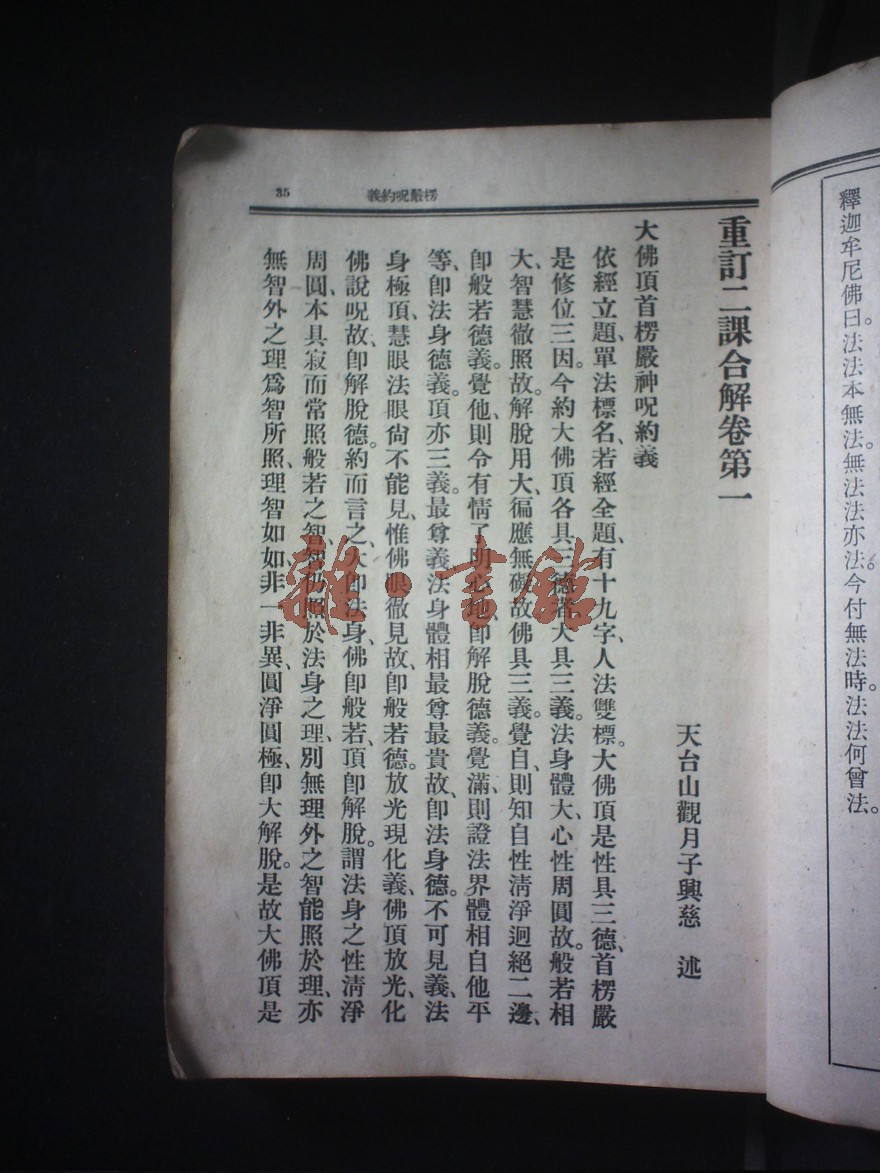 釋迦牟尼佛曰法法本無法。無法法亦法。今付無法時。法法何曾法。
楞嚴呪約義
35
重訂二課合解卷第一
天台山觀月子興慈 述
大佛頂首楞嚴神呪約義
依經立題、單法標名、若經全題、有十九字、人法雙標。大佛頂是性具三德、首楞嚴
是修位三因。今約大佛頂各具三德者、大具三義。法身體大、心性周圓故。般若相
大、智慧徹照故。解脫用大、徧應無礙故佛具三義。覺自、則知自性清淨迥絕二邊、
卽般若德義。覺他、則令有情了明心地、卽解脫德義。覺滿、則證法界體相自他平
等、卽法身德義。頂亦三義。最尊義法身體相最尊最貴故、卽法身德。不可見義、法
身極頂、慧眼法眼尙不能見、惟佛眼徹見故、卽般若德。放光現化義、佛頂放光、化
佛說呪故、卽解脫德。約而言之、大卽法身、佛卽般若、頂卽解脫。謂法身之性清淨
周圓、本具寂而常照般若之智、智仍照於法身之理、別無理外之智能照於理、亦
無智外之理爲智所照、理智如如、非一非異、圓淨圓極、卽大解脫。是故大佛頂是
雜·書館